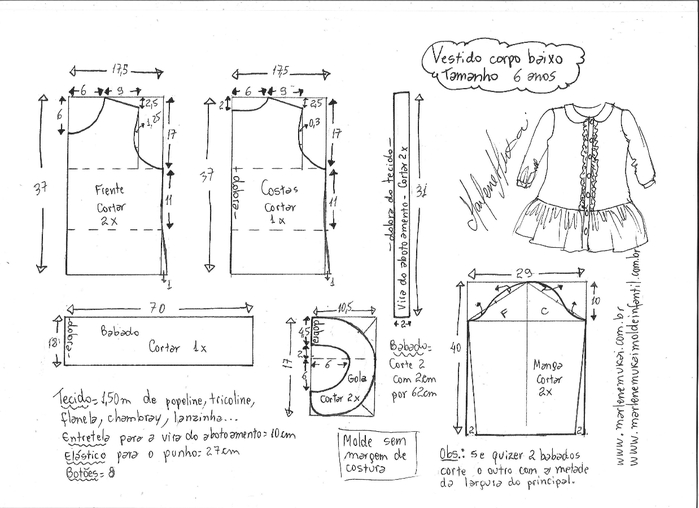 Vestido corpo baixo
Tamanho 6 anos
17,5
6 9
2,5
6
1,25
17
37
11
Frente
Cortar
2x
1
17,5
6 9
2
2,5
0,3
17
37
11
dobra
Costas
Cortar
1x
1
dobra do tecido
Vira do abotoamento - Cortar 2x
2
70
18
dobra
Babado
Cortar 1x
10,5
dobra
4,5
2
6
17
Gola
Cortar 2x
Babado=
Corte 2
com 2cm
por 62cm
29
10
F C
40
Manga
Cortar
2x
2 2
www.marlenemukai.com.br
www.marlenemukaimoldeinfantil.com.br
Tecido=1,50m de popeline, tricoline,
flanela, chambray, lanzinha...
Entretela para a vira do abotoamento=10cm
Elástico para o punho=27cm
Botões=8
Molde sem
margem de
costura
Obs.: Se quizer 2 babados
corte o outro com a metade
da largura do principal.